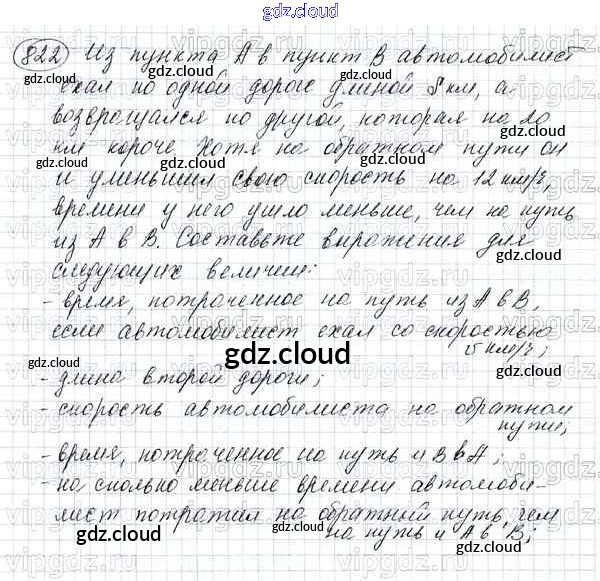 gdz.cloud
822 Из пункта А в пункт В автомобилист
ехал по одной дороге длиной S км, а
возвращался по другой, которая на 20
км короче. Хотя на обратном пути он
и уменьшил свою скорость на 12 км/ч,
времени у него ушло меньше, чем на путь
из А в В. Составьте выражения для
следующих величин:
- время, потраченное на путь из А в В,
если автомобилист ехал со скоростью
v км/ч;
- длина второй дороги;
- скорость автомобилиста на обратном
пути;
- время, потраченное на путь и В в А;
- на сколько меньше времени автомоби-
лист потратил на обратный путь, чем
на путь и А в В;
gdz.cloud